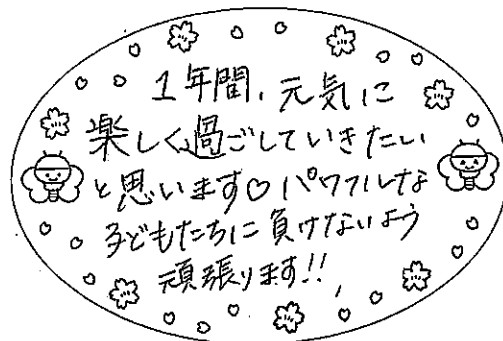 1年間、元気に
楽しく過ごしていきたい
と思います♡パワフルな
子どもたちに負けないよう
頑張ります!!